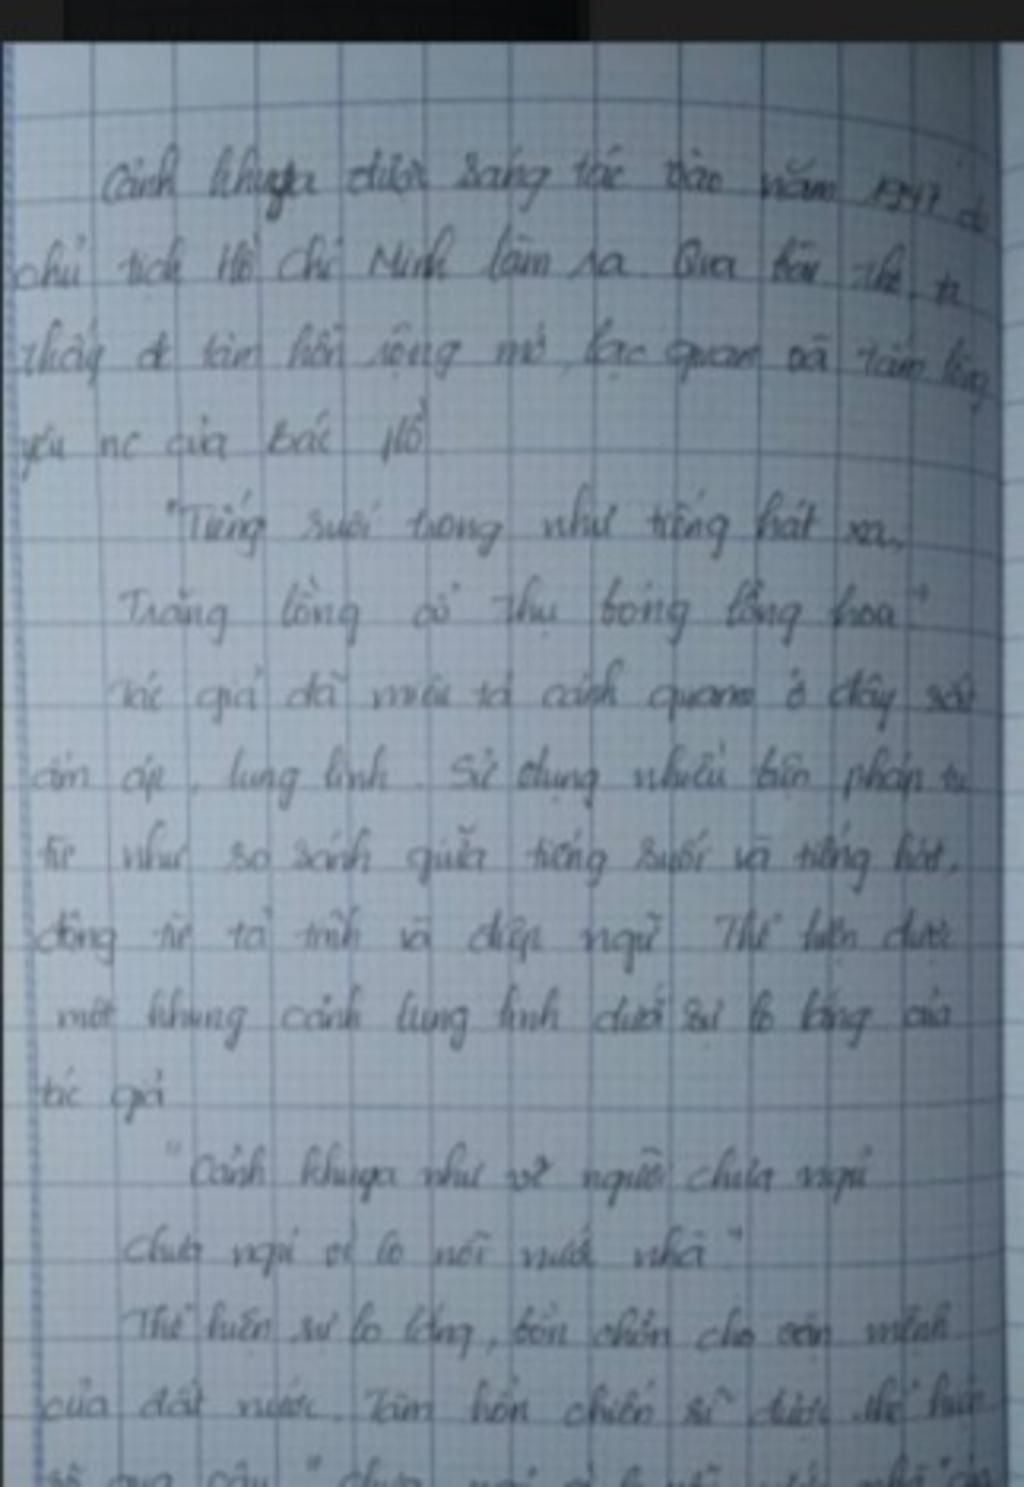 Cảnh khuya được sáng tác vào năm 1947 do
chủ tịch Hồ Chí Minh làm ra. Qua bài thơ, ta
thấy đc tâm hồn rộng mở, lạc quan và tấm lòng
yêu nc của Bác Hồ
"Tiếng suối trong như tiếng hát xa,
Trăng lồng cổ thụ bóng lồng hoa"
Tác giả đã miêu tả cảnh quang ở đây rất
ấm áp, lung linh. Sử dụng nhiều biện pháp tu
từ như so sánh giữa tiếng suối và tiếng hát,
động từ tả tình và điệp ngữ. Thể hiện được
một khung cảnh lung linh dưới sự lo lắng của
tác giả
"Cảnh khuya như vẽ người chưa ngủ
Chưa ngủ vì lo nỗi nước nhà"
Thể hiện sự lo lắng, bồn chồn cho vận mệnh
của đất nước. Tâm hồn chiến sĩ được thể hiện
qua câu "chưa ngủ vì lo nỗi nước nhà"